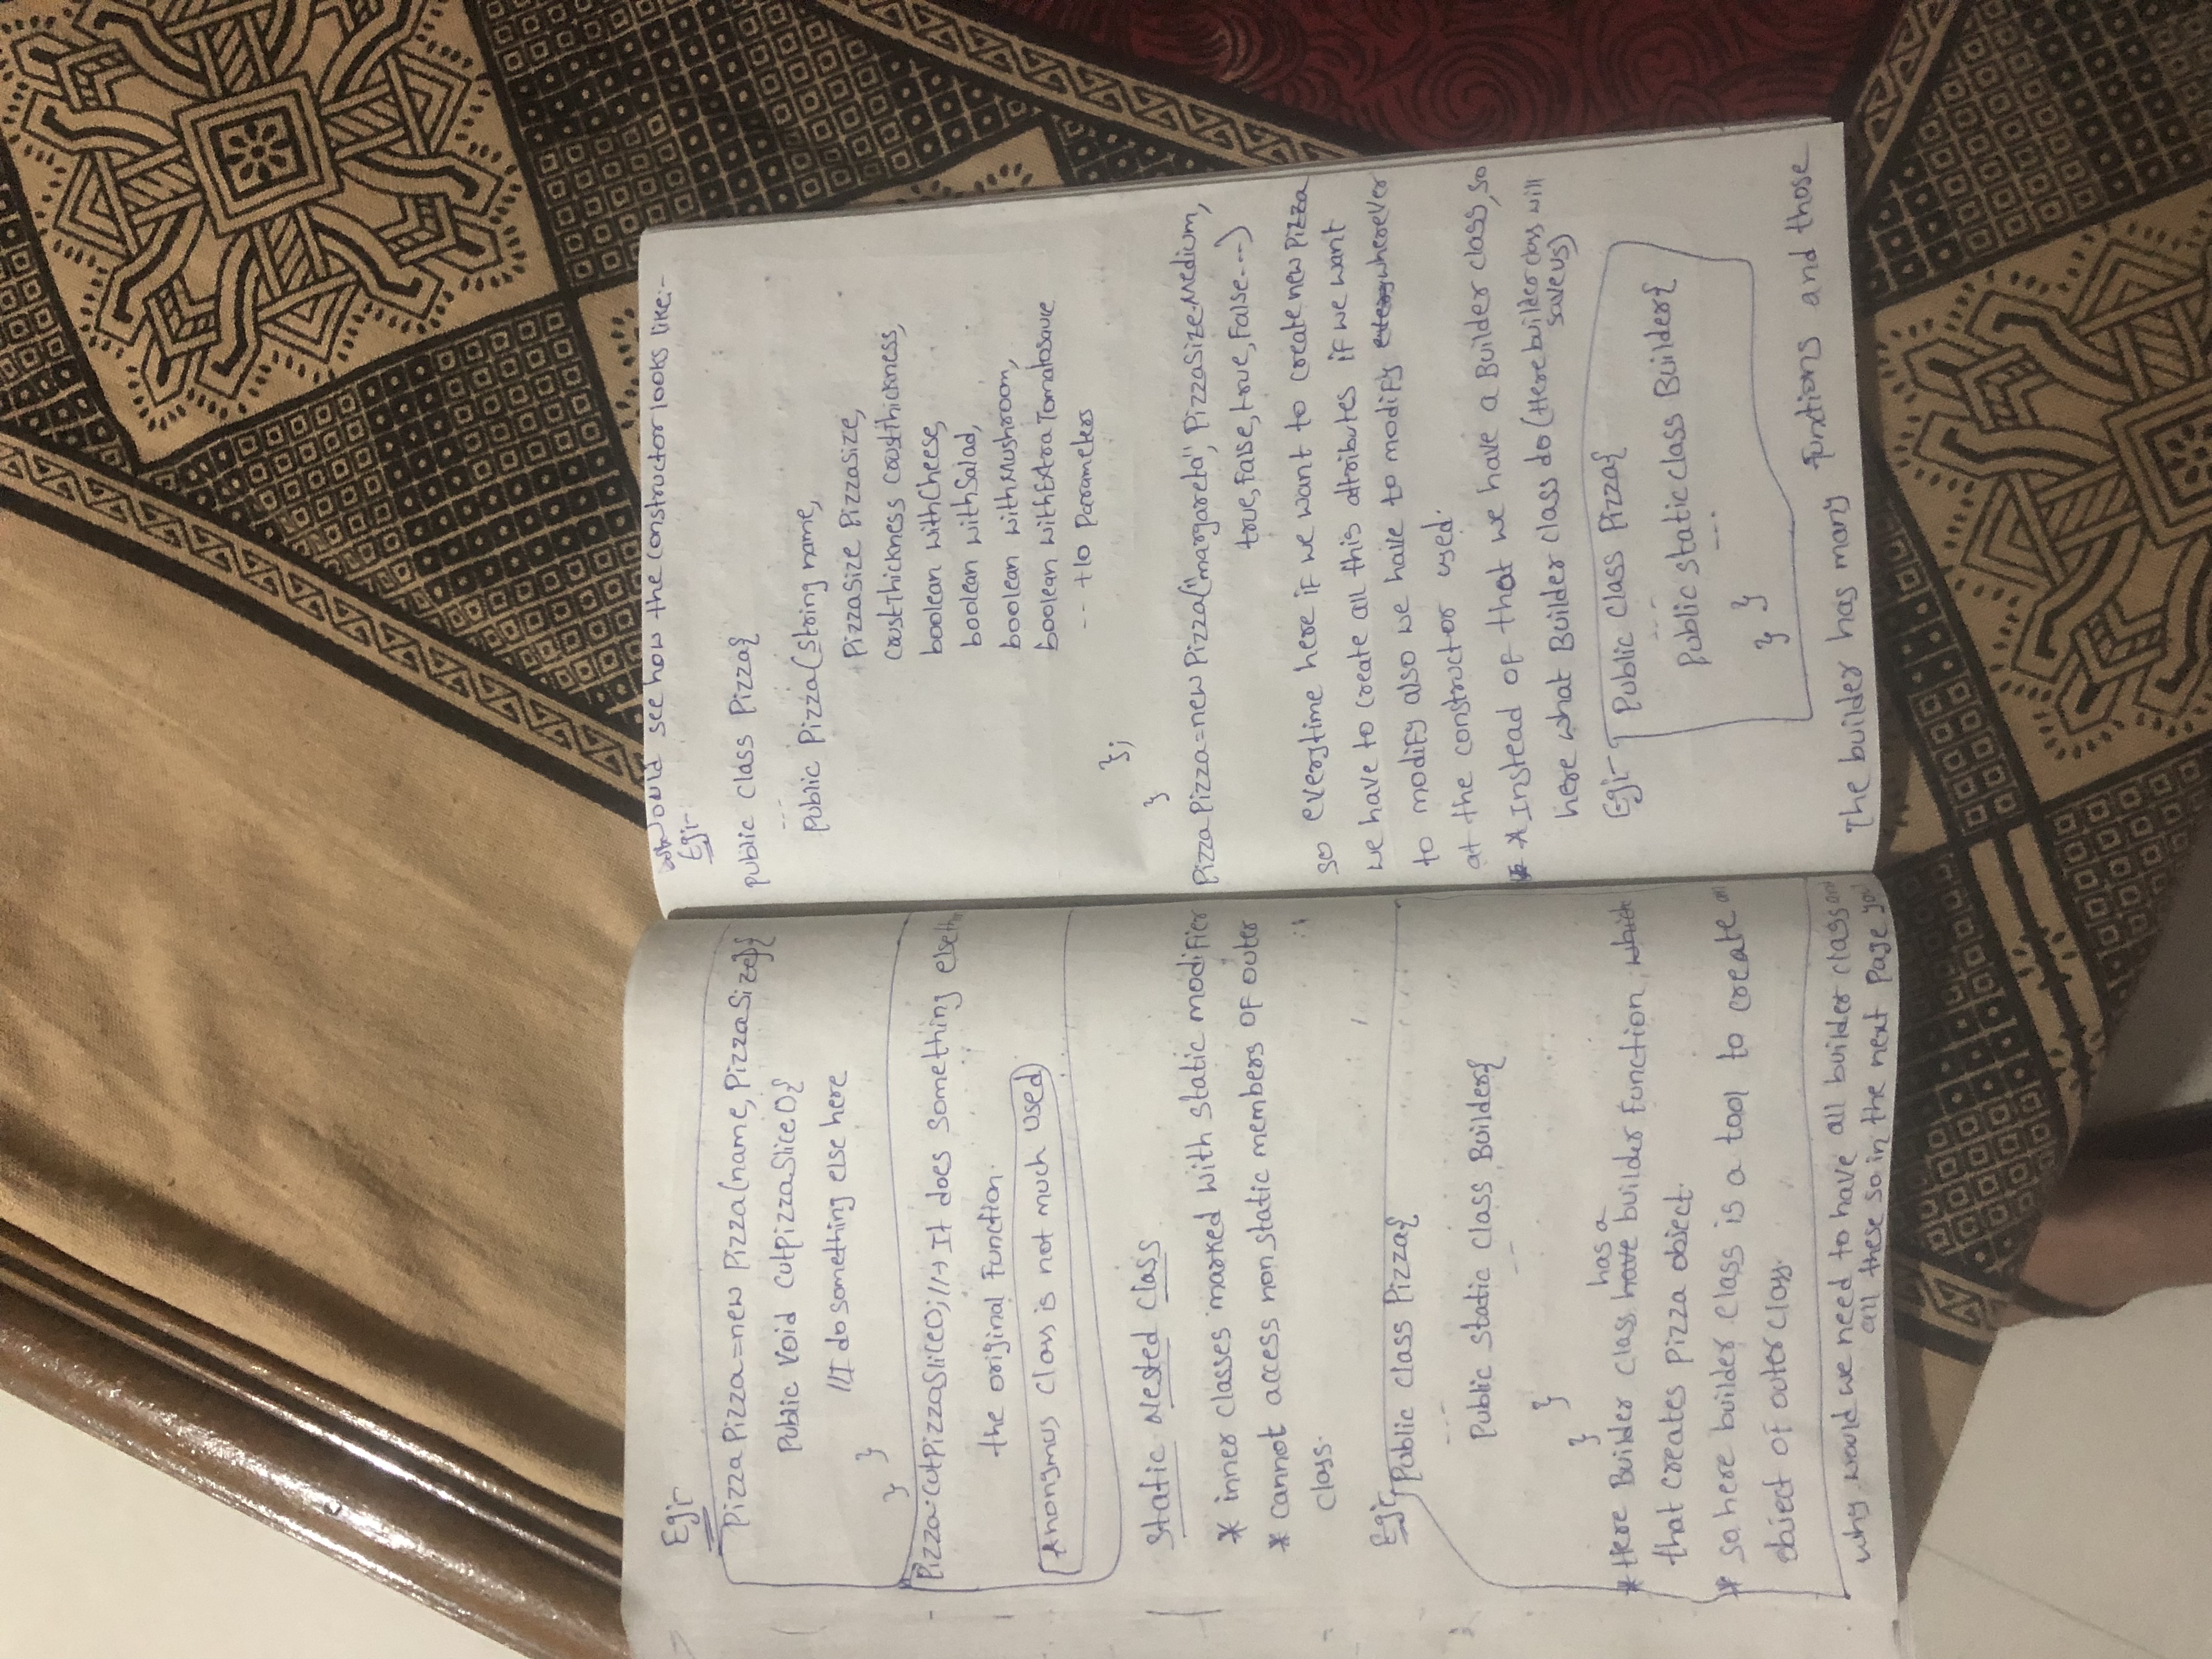 Eg:-
Pizza Pizza=new Pizza(name, PizzaSize){
Public Void CutPizzaSlice(){
//I do something else here
}
}
Pizza.CutPizzaSlice();//→ It does something else than
the original Function.
Anonymus Class is not much used
Static Nested Class
* inner classes marked with static modifier
* cannot access non static members of outer
class.
Eg:-
Public class Pizza{
---
Public Static Class Builder{
--
}
}
has a
* Here Builder Class have builder function, which
that creates Pizza object.
* so here builder class is a tool to create an
object of outer class.
why would we need to have all builder class and
all these so in the next Page you
would see how the constructor looks like:-
Eg:-
public class Pizza{
---
Public Pizza(String name,
PizzaSize PizzaSize,
CrustThickness CrustThickness,
boolean withCheese,
boolean withSalad,
boolean withMushroom,
boolean withExtra Tomatosauce
-- +10 Parameters
};
}
Pizza Pizza=new Pizza("margareta", PizzaSize.Medium,
true, False, true, False---)
so everytime here if we want to create new Pizza
we have to create all this attributes if we want
to modify also we have to modify every wherever
at the constructor used.
* Instead of that we have a Builder class, so
here what Builder class do (Here builder class will
save us)
Eg:-
Public Class Pizza{
---
Public static class Builder{
---
}
}
The builder has many functions and those